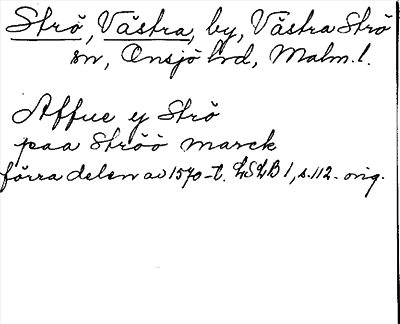 Strö, Västra, by, Västra Strö
sn, Onsjö hd, Malm. l.
Affue y Strö
paa Ströö marck
förra delen av 1570-t. LSLB 1, s. 112. orig.